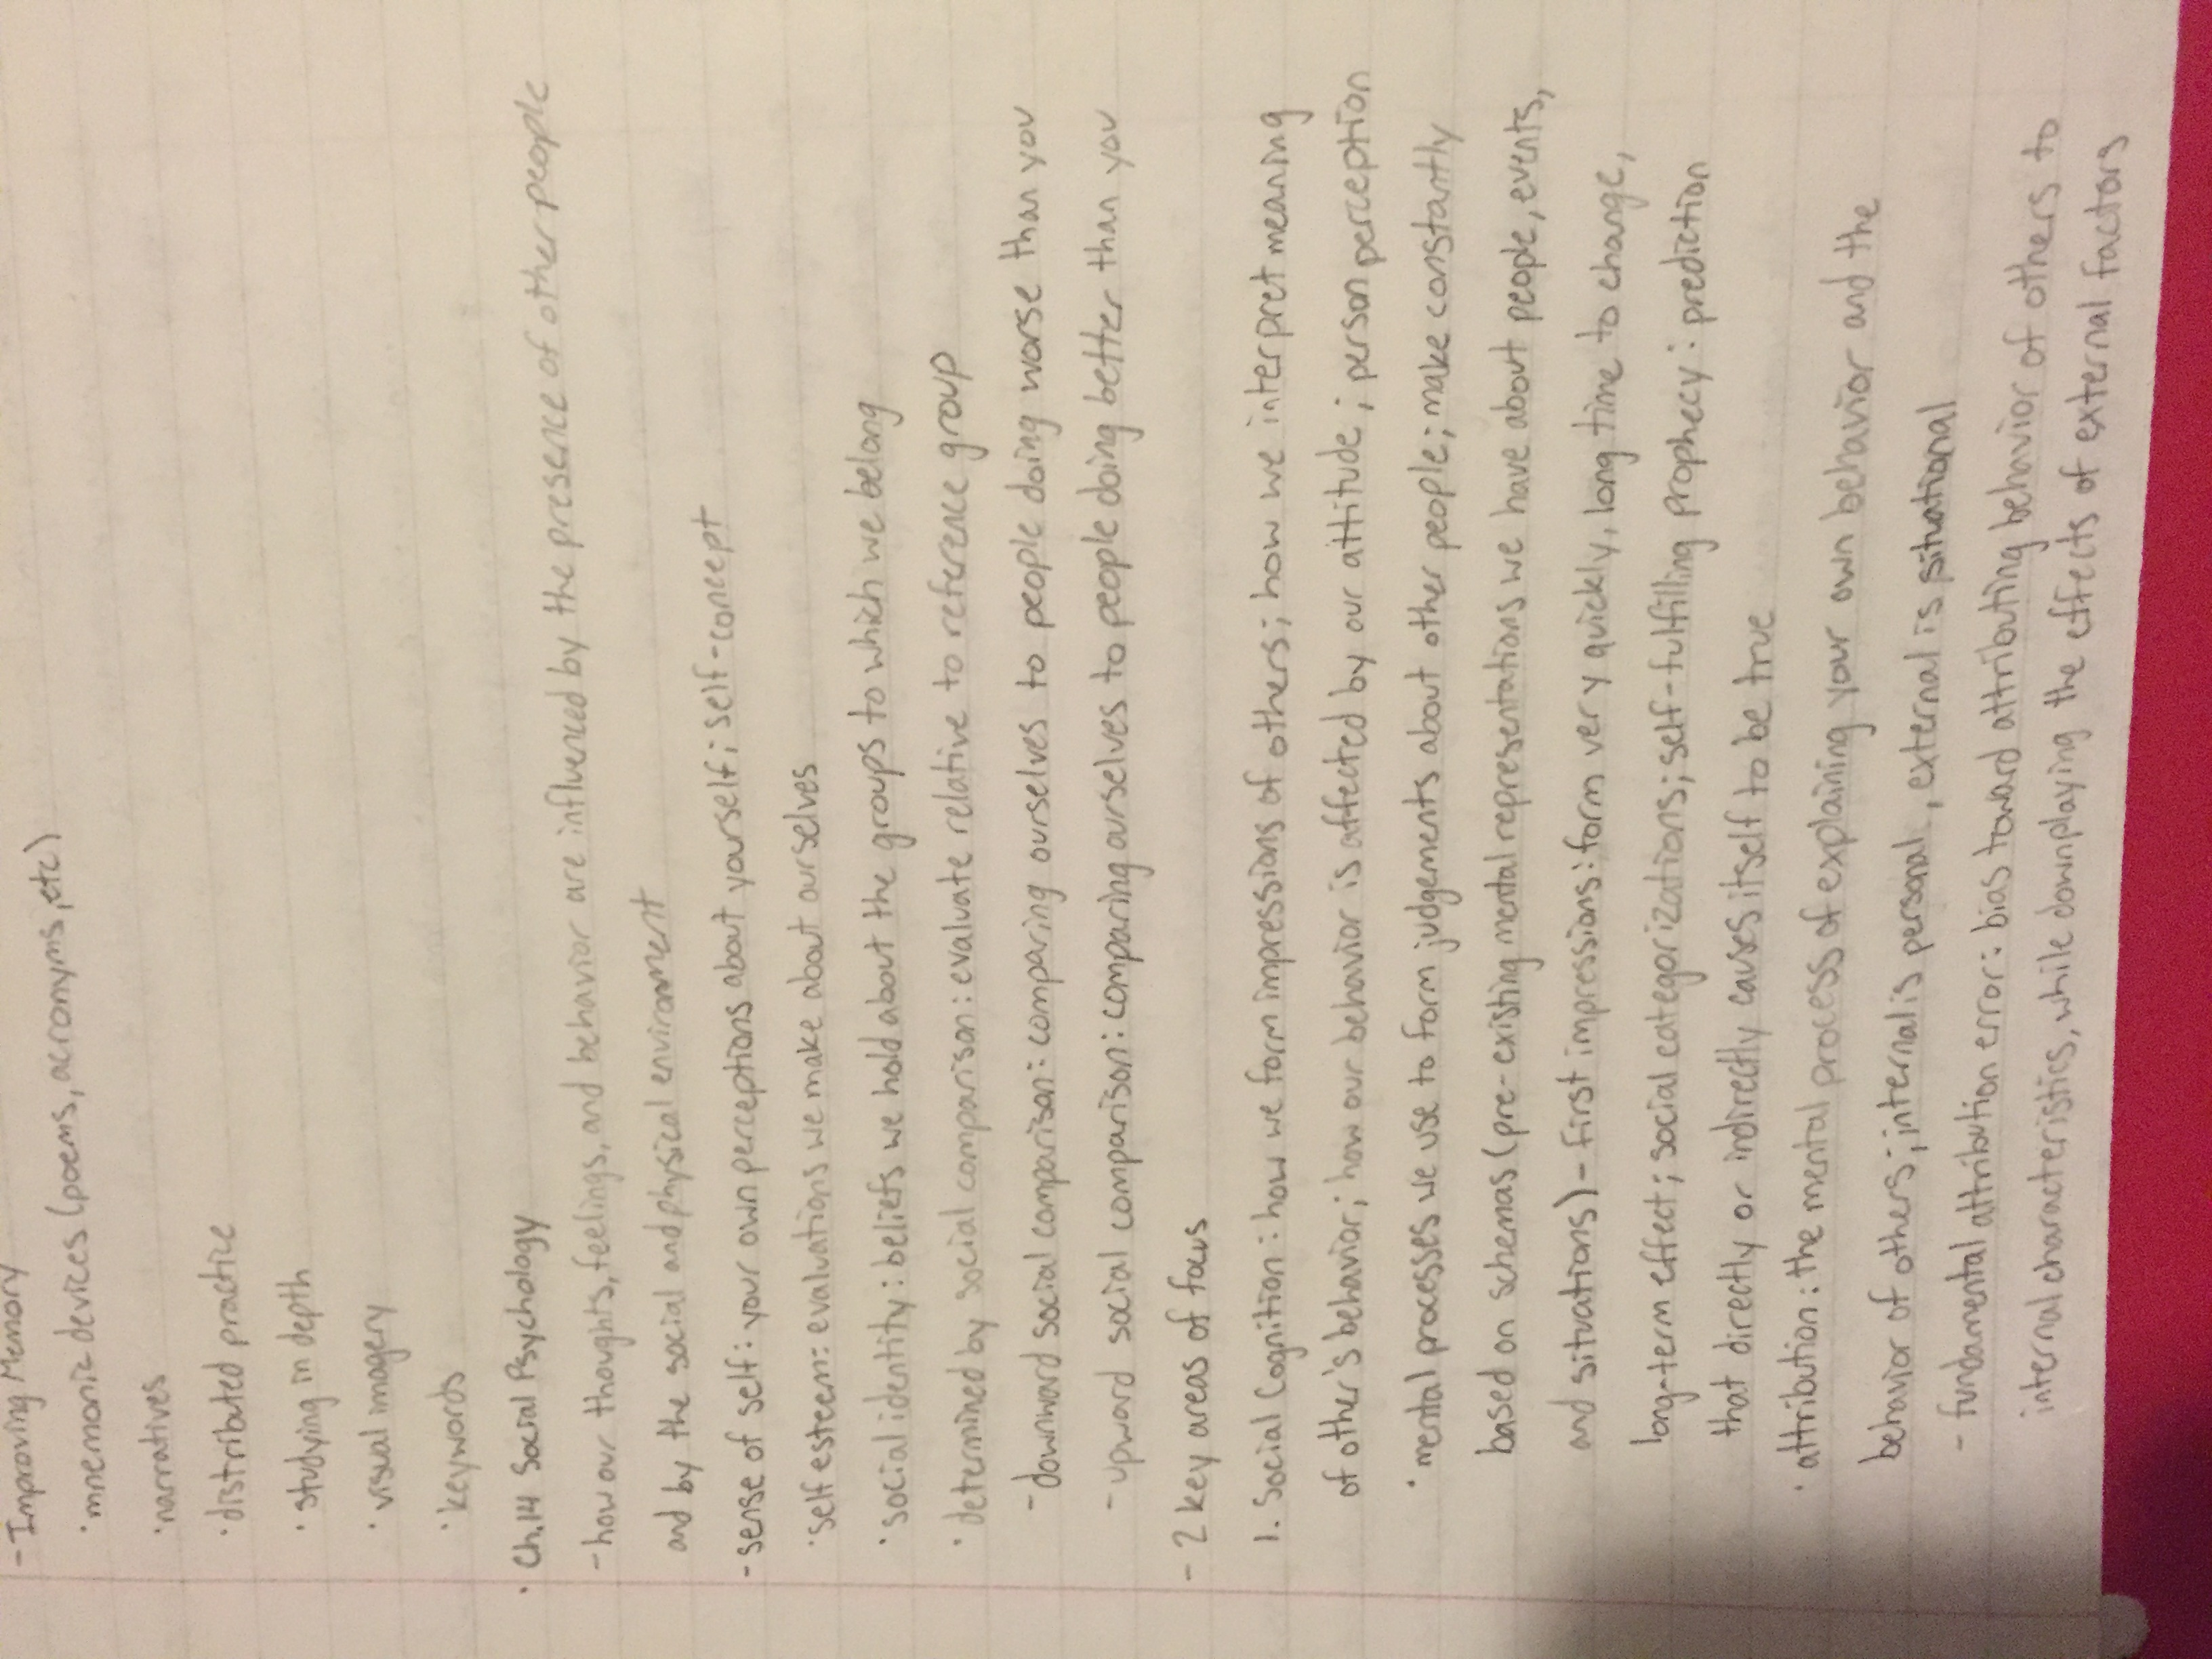 - Improving Memory
· mnemonic devices (poems, acronyms, etc)
· narratives
· distributed practice
· studying in depth
· visual imagery
· keywords
· Ch.14 Social Psychology
- how our thoughts, feelings, and behavior are influenced by the presence of other people
and by the social and physical environment
- sense of self: your own perceptions about yourself; self-concept
· self esteem: evaluations we make about ourselves
· social identity: beliefs we hold about the groups to which we belong
· determined by social comparison: evaluate relative to reference group
- downward social comparison: comparing ourselves to people doing worse than you
- upward social comparison: comparing ourselves to people doing better than you
- 2 key areas of focus
1. Social Cognition: how we form impressions of others; how we interpret meaning
of other's behavior; how our behavior is affected by our attitude; person perception
· mental processes we use to form judgements about other people; make constantly
based on schemas (pre-existing mental representations we have about people, events,
and situations) - first impressions: form very quickly, long time to change,
long-term effect; social categorizations; self-fulfilling prophecy: prediction
that directly or indirectly causes itself to be true
· attribution: the mental process of explaining your own behavior and the
behavior of others; internal is personal, external is situational
- fundamental attribution error: bias toward attributing behavior of others to
internal characteristics, while downplaying the effects of external factors